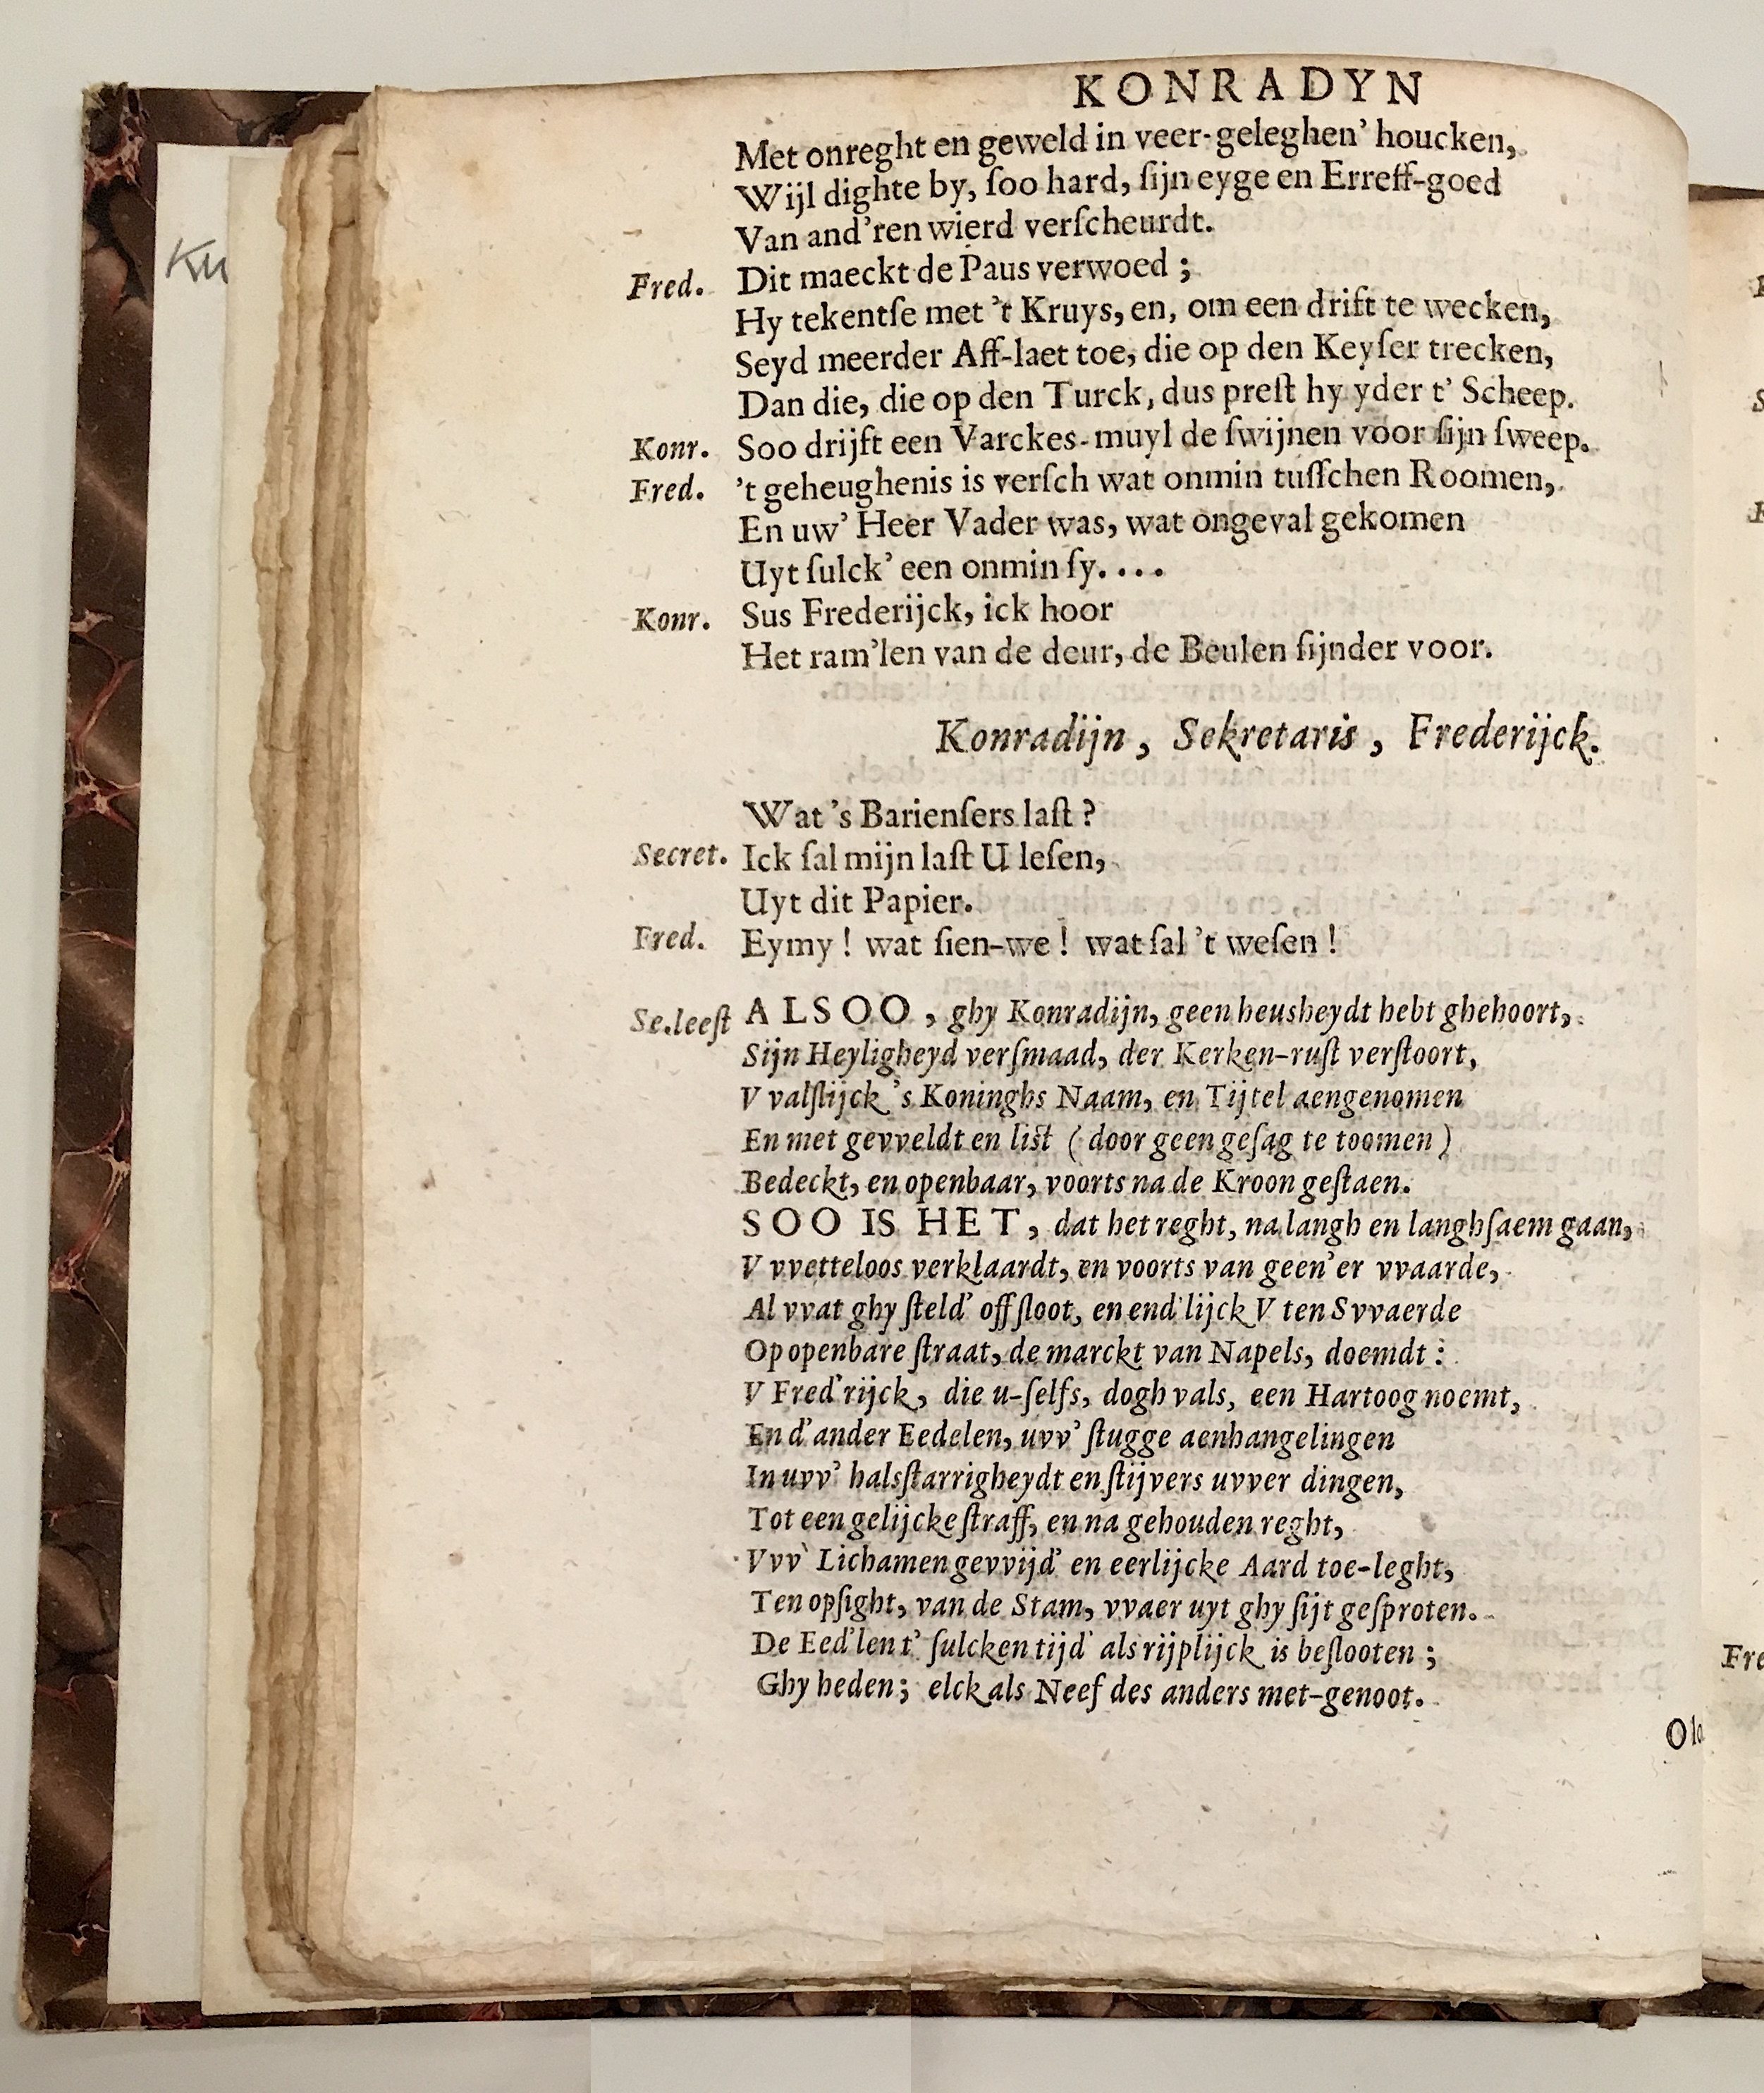 KONRADYN
Met onreght en geweld in veer-geleghen' houcken,
Wijl dighte by, ſoo hard, ſijn eyge en Erreff-goed
Van and'ren wierd verſcheurdt.
Fred. Dit maeckt de Paus verwoed ;
Hy tekentſe met 't Kruys, en, om een drift te wecken,
Seyd meerder Aff-laet toe, die op den Keyſer trecken,
Dan die, die op den Turck, dus preſt hy yder t' Scheep.
Konr. Soo drijft een Varckes-muyl de ſwijnen voor ſijn ſweep.
Fred. 't geheughenis is verſch wat onmin tuſſchen Roomen,
En uw' Heer Vader was, wat ongeval gekomen
Uyt ſulck' een onmin ſy....
Konr. Sus Frederijck, ick hoor
Het ram'len van de deur, de Beulen ſijnder voor.
Konradijn, Sekretaris, Frederijck.
Wat 's Barienſers laſt ?
Secret. Ick ſal mijn laſt U leſen,
Uyt dit Papier.
Fred. Eymy ! wat ſien-we ! wat ſal 't weſen !
Se.leeſt ALSOO, ghy Konradijn, geen heusheydt hebt ghehoort,
Sijn Heyligheyd verſmaad, der Kerken-ruſt verſtoort,
V valſlijck 's Koninghs Naam, en Tijtel aengenomen
En met gevveldt en liſt ( door geen geſag te toomen )
Bedeckt, en openbaar, voorts na de Kroon geſtaen.
SOO IS HET, dat het reght, na langh en langhſaem gaan,
V vvetteloos verklaardt, en voorts van geen'er vvaarde,
Al vvat ghy ſteld' off ſloot, en end'lijck V ten Svvaerde
Op openbare ſtraat, de marckt van Napels, doemdt :
V Fred'rijck, die u-ſelfs, dogh vals, een Hartoog noemt,
En d'ander Eedelen, uvv' ſtugge aenhangelingen
In uvv' halsſtarrigheydt en ſtijvers uvver dingen,
Tot een gelijcke ſtraff, en na gehouden reght,
Vvv' Lichamen gevvijd' en eerlijcke Aard toe-leght,
Ten opſight, van de Stam, vvaer uyt ghy ſijt geſproten.
De Eed'len t' ſulcken tijd' als rijplijck is beſlooten ;
Ghy heden; elck als Neef des anders met-genoot.
Ku
Fre